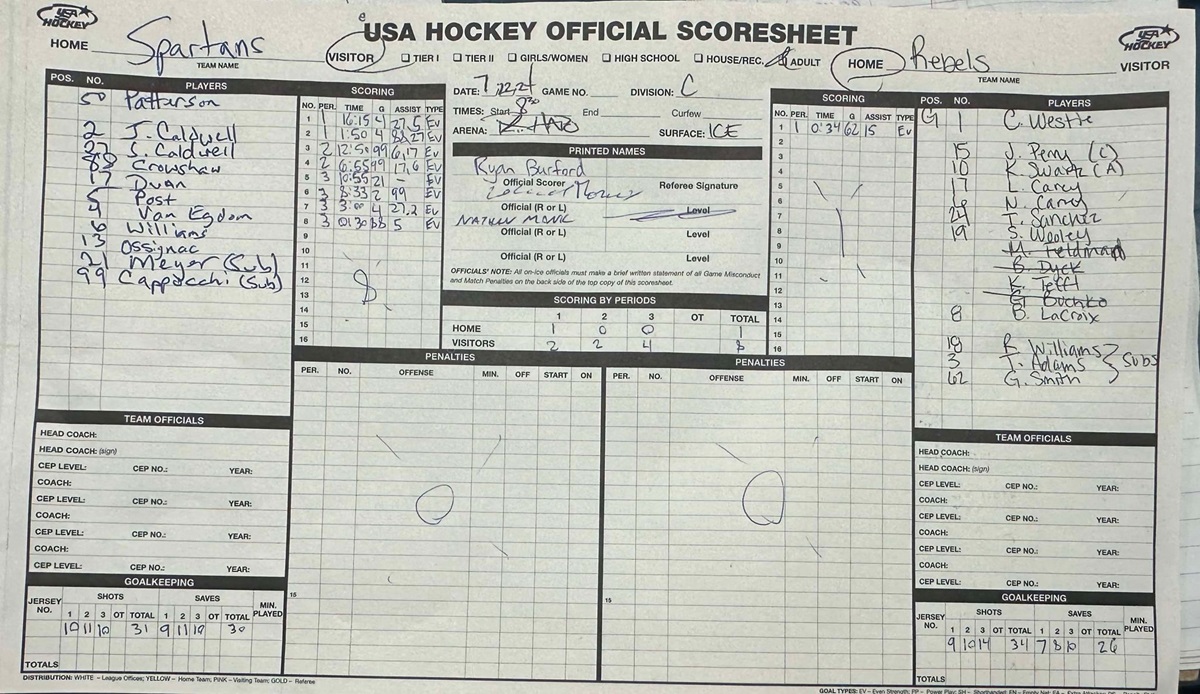 USA HOCKEY
USA HOCKEY OFFICIAL SCORESHEET
USA HOCKEY
HOME Spartans VISITOR ☐ TIER I ☐ TIER II ☐ GIRLS/WOMEN ☐ HIGH SCHOOL ☐ HOUSE/REC. ☐ ADULT HOME Rebels VISITOR
TEAM NAME
TEAM NAME
POS. NO. PLAYERS
50 Patterson
2 J. Caldwell
27 S. Caldwell
88 Crowshaw
17 Dunn
5 Post
4 Van Egdom
6 Williams
13 Ossignac
21 Meyer (Sub)
99 Cappacchi (Sub)
SCORING
NO. PER. TIME G ASSIST TYPE
1 1 16:15 4 27,5 EV
2 1 1:50 4 88,27 EV
3 2 12:50 99 6,17 EV
4 2 6:55 99 17,6 EV
5 3 10:55 21 — EV
6 3 8:33 2 99 EV
7 3 3:00 4 27,2 EV
8 3 01:30 88 5 EV
9
10
11
12
13
14
15
16
8
DATE: 7/22/24 GAME NO. DIVISION: C
TIMES: Start 8:30 End Curfew
ARENA: SURFACE: ICE
PRINTED NAMES
Ryan Burford
Official Scorer Referee Signature
Official (R or L) Level
Official (R or L) Level
Official (R or L) Level
OFFICIALS' NOTE: All on-ice officials must make a brief written statement of all Game Misconduct
and Match Penalties on the back side of the top copy of this scoresheet.
SCORING BY PERIODS
1 2 3 OT TOTAL
HOME 1 0 0 1
VISITORS 2 2 4 8
SCORING
NO. PER. TIME G ASSIST TYPE
1 1 0:34 62 15 EV
2
3
4
5
6
7
8
9
10
11
12
13
14
15
16
1
POS. NO. PLAYERS
G 1 C. Westie
15 J. Perry (C)
10 K. Swartz (A)
17 L. Carey
16 N. Carey
24 T. Sanchez
19 S. Wesley
M. Feldman
B. Dyck
K. Tefft
G. Buchko
8 B. LaCroix
18 R. Williams
3 T. Adams } Subs
62 G. Smith
PENALTIES
PER. NO. OFFENSE MIN. OFF START ON
15
PENALTIES
PER. NO. OFFENSE MIN. OFF START ON
15
TEAM OFFICIALS
HEAD COACH:
HEAD COACH: (sign)
CEP LEVEL: CEP NO.: YEAR:
COACH:
CEP LEVEL: CEP NO.: YEAR:
COACH:
CEP LEVEL: CEP NO.: YEAR:
COACH:
CEP LEVEL: CEP NO.: YEAR:
GOALKEEPING
JERSEY NO. SHOTS SAVES MIN. PLAYED
1 2 3 OT TOTAL 1 2 3 OT TOTAL
10 11 10 31 9 11 10 30
TOTALS
TEAM OFFICIALS
HEAD COACH:
HEAD COACH: (sign)
CEP LEVEL: CEP NO.: YEAR:
COACH:
CEP LEVEL: CEP NO.: YEAR:
COACH:
CEP LEVEL: CEP NO.: YEAR:
COACH:
CEP LEVEL: CEP NO.: YEAR:
GOALKEEPING
JERSEY NO. SHOTS SAVES MIN. PLAYED
1 2 3 OT TOTAL 1 2 3 OT TOTAL
9 10 14 34 7 8 10 26
TOTALS
DISTRIBUTION: WHITE – League Offices; YELLOW – Home Team; PINK – Visiting Team; GOLD – Referee
GOAL TYPES: EV – Even Strength; PP – Power Play; SH – Shorthanded; EN – Empty Net;